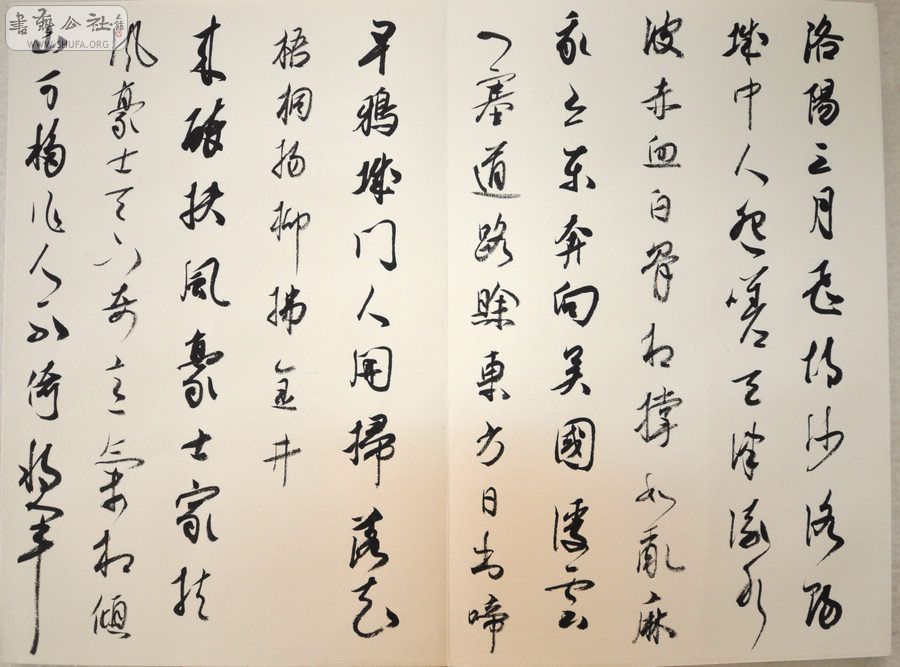 書法公社
WWW.SHUFA.ORG
洛陽三月飛胡沙洛陽
城中人怨嗟天津流水
波赤血白骨相撐如亂麻
我亦東奔向吳國雲
四塞道路賒東方日出啼
早鴉城門人開掃落花
梧桐楊柳拂金井
來醉扶風豪士家扶
風豪士天下奇意氣相傾
山可移作人不倚將軍